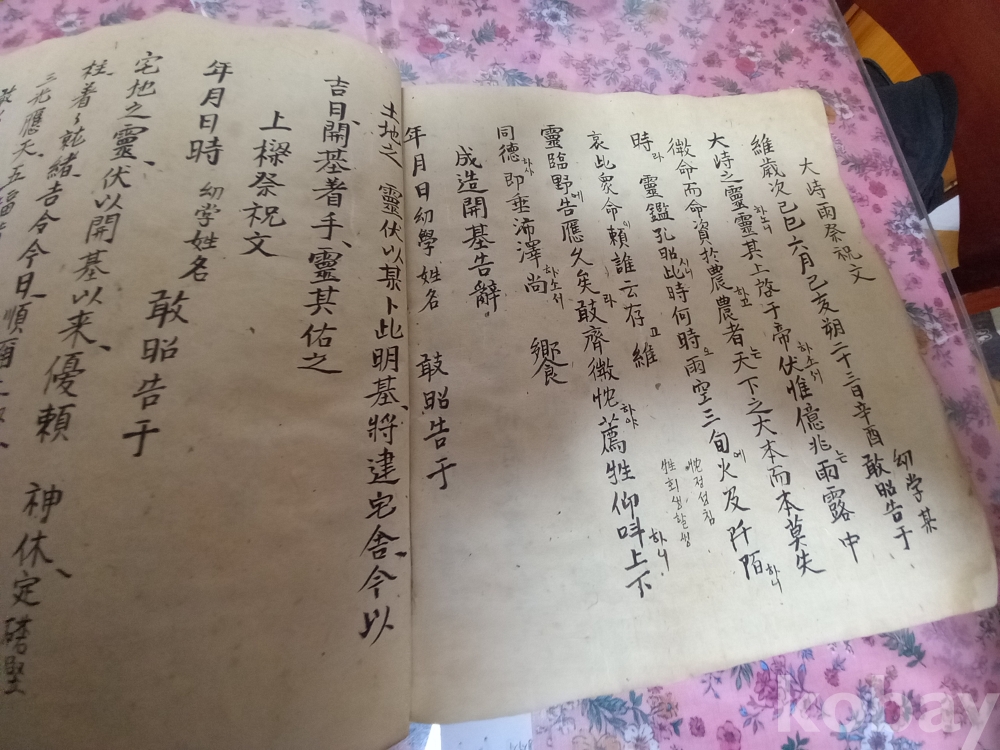 大峙雨祭祝文
維歲次己巳六月己亥朔二十三日辛酉 幼学某 敢昭告于
大峙之靈靈하소니其上啓于帝하소서伏惟億兆는雨露中
微命而命資於農하고農者는天下之大本而本莫失
時라 靈鑑孔昭시니此時何時오雨空三旬에火及阡陌하니
哀此衆命이賴誰云存고 維
忱정성침
牲희생할생
靈臨野에告應久矣라敢齊微忱하야薦牲仰呌上下하니
同德하사即垂沛澤하소서尚 饗
成造開基告辭
年月日幼學姓名 敢昭告于
土地之 靈伏以某卜此明基、將建宅舍、今以
吉日、開基着手、靈其佑之
上樑祭祝文
年月日時 幼学姓名 敢昭告于
宅地之靈、伏以開基以来、優頼 神休、定礎堅
柱、着々就緒、吉合今日、順爾
三光應天、五福
kobay